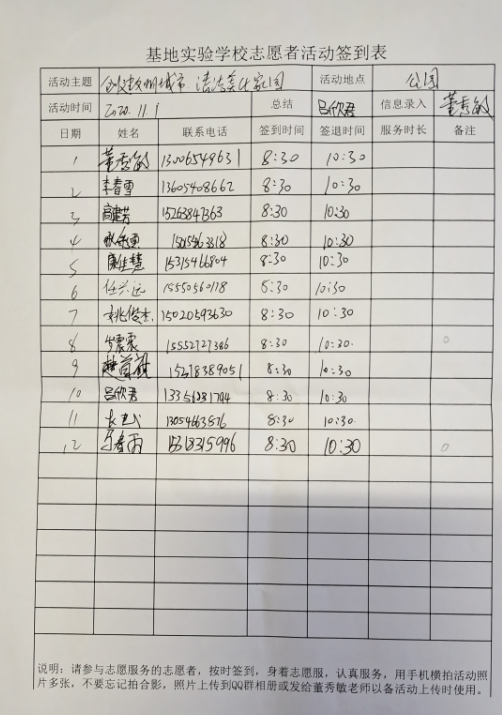 基地实验学校志愿者活动签到表
活动主题 创建文明城市 清洁美化家园 活动地点 公园
活动时间 2020.11.1 总结 吕欣君 信息录入 董秀敏
日期 姓名 联系电话 签到时间 签退时间 服务时长 备注
1 董秀敏 13006549631 8:30 10:30
2 李春雪 13605408662 8:30 10:30
3 高建芳 15263847363 8:30 10:30
4 8:30 10:30
5 15315466804 8:30 10:30
6 任兴远 15550560118 8:30 10:30
7 姚俊杰 15020593630 8:30 10:30
8 15552727386 8:30 10:30
9 15278389051 8:30 10:30
10 吕欣君 8:30 10:30
11 13054663876 8:30 10:30
12 马春雨 8:30 10:30
说明：请参与志愿服务的志愿者，按时签到，身着志愿服，认真服务，用手机横拍活动照
片多张，不要忘记拍合影，照片上传到QQ群相册或发给董秀敏老师以备活动上传时使用。